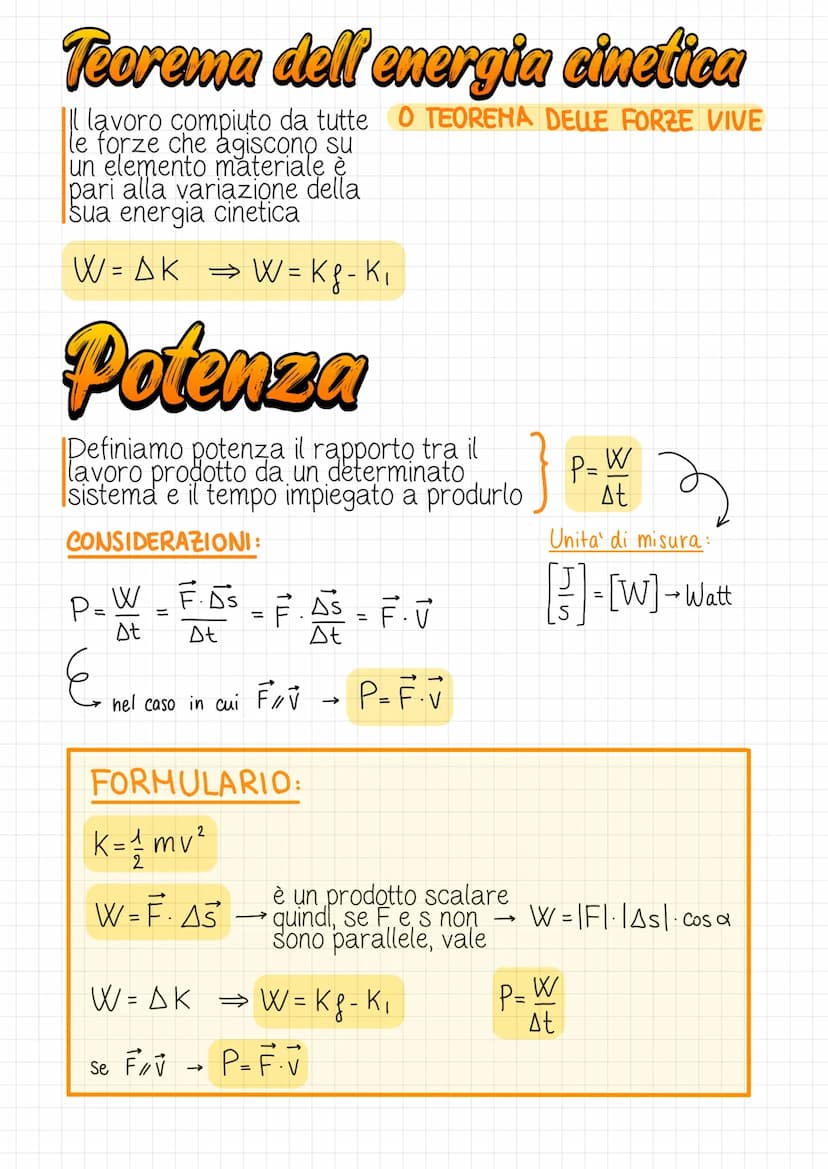 Teorema dell'energia cinetica
O TEOREMA DELLE FORZE VIVE
Il lavoro compiuto da tutte
le forze che agiscono su
un elemento materiale è
pari alla variazione della
sua energia cinetica
W = ΔK ⇒ W = Kf - Kı
Potenza
Definiamo potenza il rapporto tra il
lavoro prodotto da un determinato
sistema e il tempo impiegato a produrlo
P = W/Δt
CONSIDERAZIONI:
Unita' di misura:
P = W/Δt = F⃗ · Δs⃗/Δt = F⃗ · Δs⃗/Δt = F⃗ · v⃗
[J/s] = [W] → Watt
nel caso in cui F⃗ // v⃗ → P = F⃗ · v⃗
FORMULARIO:
K = 1/2 mv²
W = F⃗ · Δs⃗ → è un prodotto scalare
quindi, se F e s non → W = |F| · |Δs| · cos α
sono parallele, vale
W = ΔK ⇒ W = Kf - Kı
P = W/Δt
se F⃗ // v⃗ → P = F⃗ · v⃗